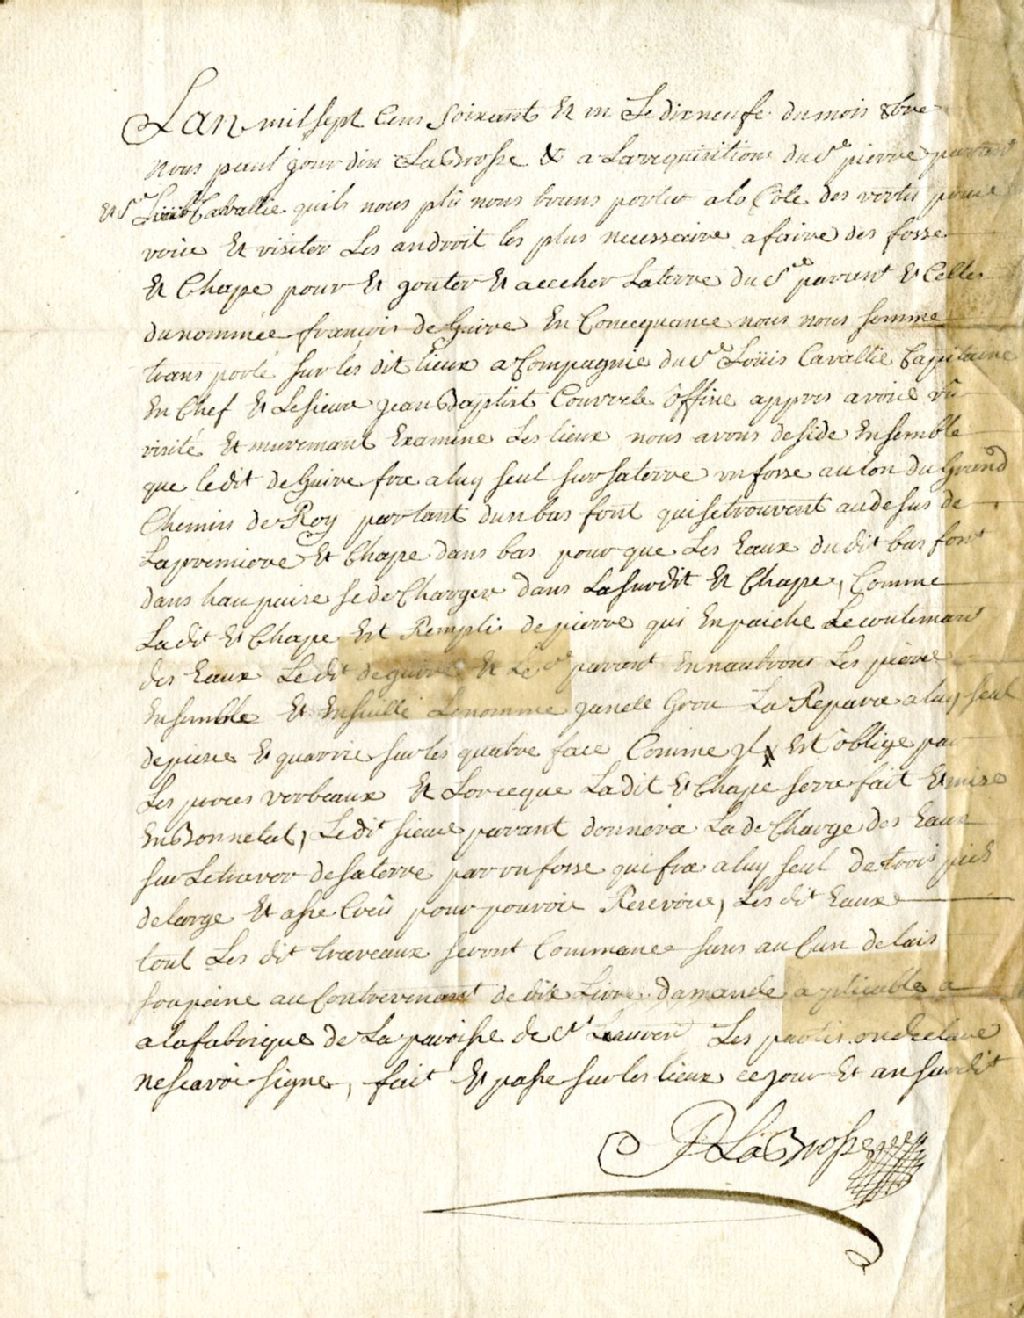 Lan mil sept Cens Soixant Et un Le dixneufe du mois 8bre
nous paul jourdin LaBrosse & a La requisitions du Sr pierre parant
Et Sr Cavallie quils nous plu nous trans porter a la Cote des vertu pour
voire Et visiter Les androit les plus necessaire a faire des fosse
Et Chape pour Et gouter Et acecher La terre du Sr parant Et Celle
du nommée francois deGuire En Concequance nous nous somme
trans porté sur les dit Lieux a Compagnie du Sr Loüis Cavallie Capitaine
En Chef Et Le sieur jean Baptist Courvele office appres avoire vu
visité Et muremant Examine Les lieux nous avons deside Ensemble
que ledit deGuire fre a luy seul sur sa terre un fosse au lon du Grand
Chemin de Roy partant dun bas font qui se trouvent au desus de
La premiere Et Chape dans bas pour que Les Eaux du dit bas font
dans haupaire se de Charger dans La surdit Et Chape, Comme
La dit Et Chape Est Rempli de pierre qui Enpaiche Le coulemant
des Eaux Le dit deguire Et Le Sr parrant En nauterons Les piere
Ensemble Et Ensuitte Le nomme janelle Grou La Repare a luy seul
de piere Et quarrie sur les quatre face Comme jl Est oblige par
Les proces verbeaux Et Lorceque La dit Et Chape serre fait Et mise
En Bonnetat, Le dit sieur parrant donnera La de Charge des Eaux
sur Le traver de sa terre par un fosse qui fra a luy seul de trois pieds
de large Et asse Creu pour pouvoir Recevoire, Les dit Eaux
tout Les dit traveaux seront Commance sans au Cun delais
sou peine au Contrevenant de dix Livre damande aplicable a
a la fabrique de La paroisse de St Lauren Les partis on declare
ne scavoir signe, fait Et passe sur les lieux ce jour Et an surdit
P LaBrosse